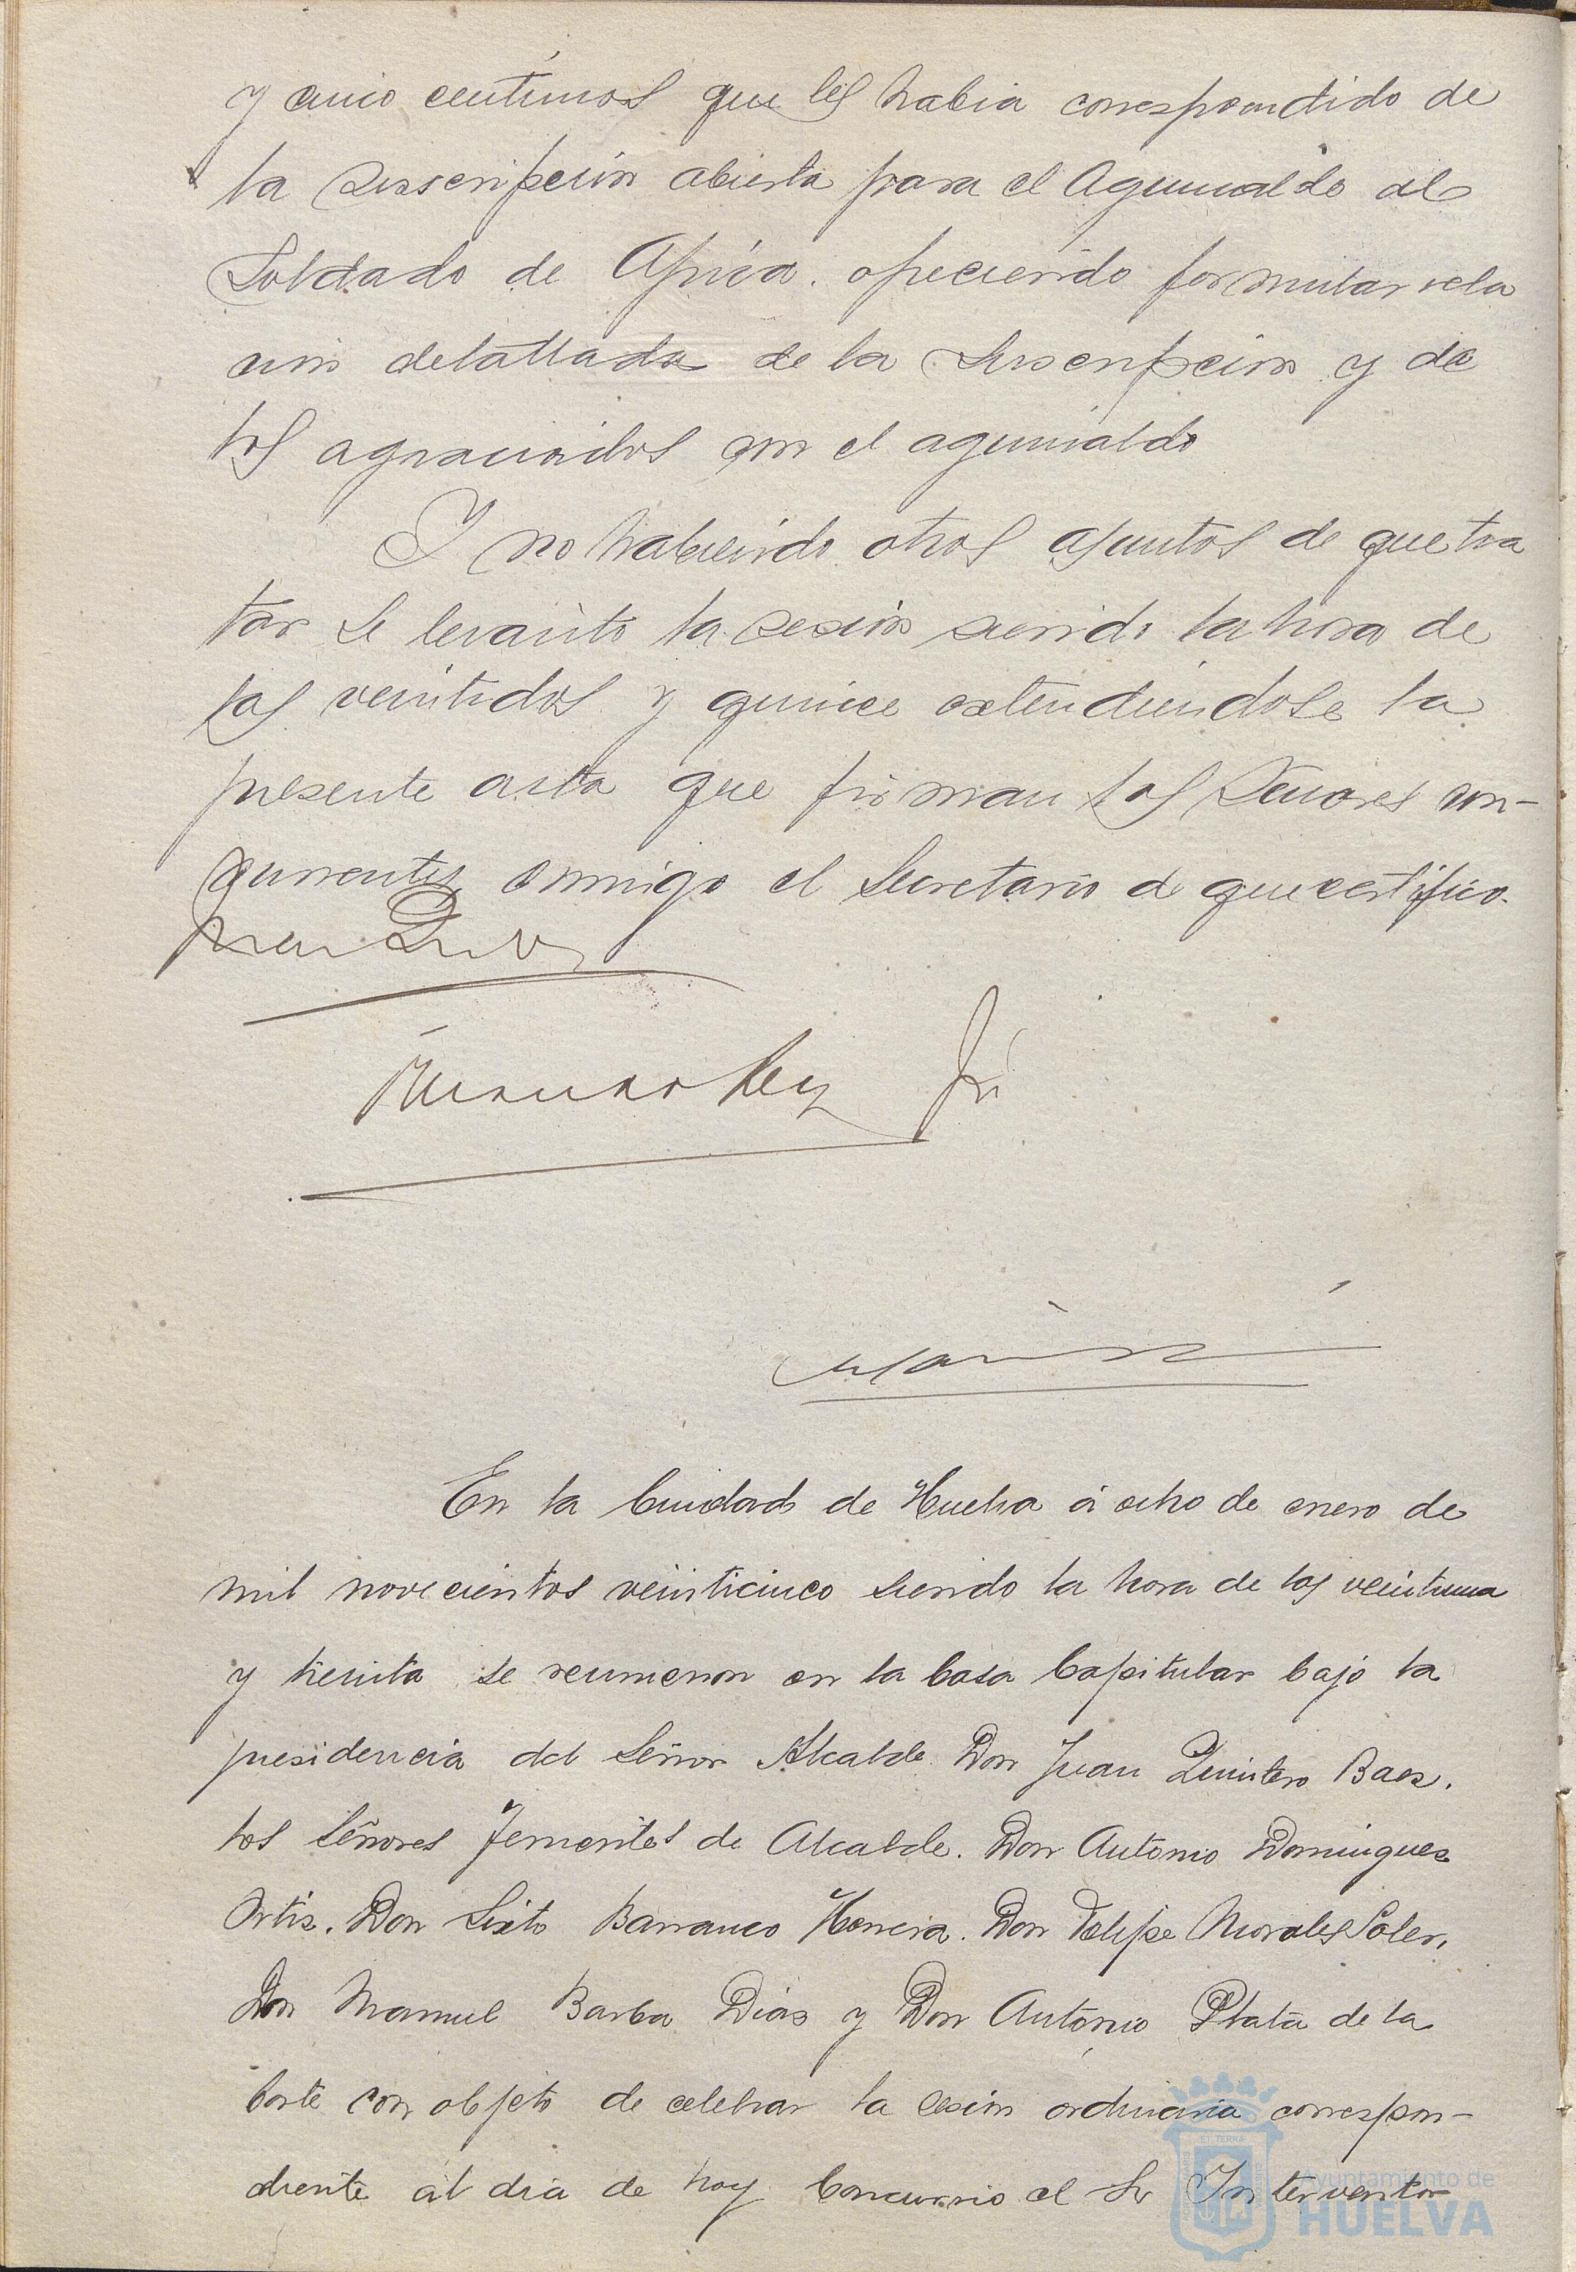 y cinco centimos que les habia correspondido de
la suscripción abierta para el Aguinaldo al
Soldado de Africa. ofreciendo formular rela
ción detallada de la suscripcion y de
los agraciados con el aguinaldo
Y no habiendo otros asuntos de que tra
tar se levantó la sesion siendo la hora de
las veintidos y quince extendiendose la
presente acta que firman los Señores con-
currentes conmigo el Secretario de que certifico.
En la Ciudad de Huelva á ocho de enero de
mil novecientos veinticinco siendo la hora de las veintiuna
y treinta se reunieron en la Casa Capitular bajo la
presidencia del Señor Alcalde Don Juan Quintero Baez.
los Señores Tenientes de Alcalde. Don Antonio Dominguez
Ortiz. Don Sixto Barranco Herrera. Don Felipe Morales Soler,
Don Manuel Barba Diaz y Don Antonio Plata de la
Corte con objeto de celebrar la sesion ordinaria correspon-
diente al dia de hoy. Concurrio el Sr Interventor
Ayuntamiento de
HUELVA